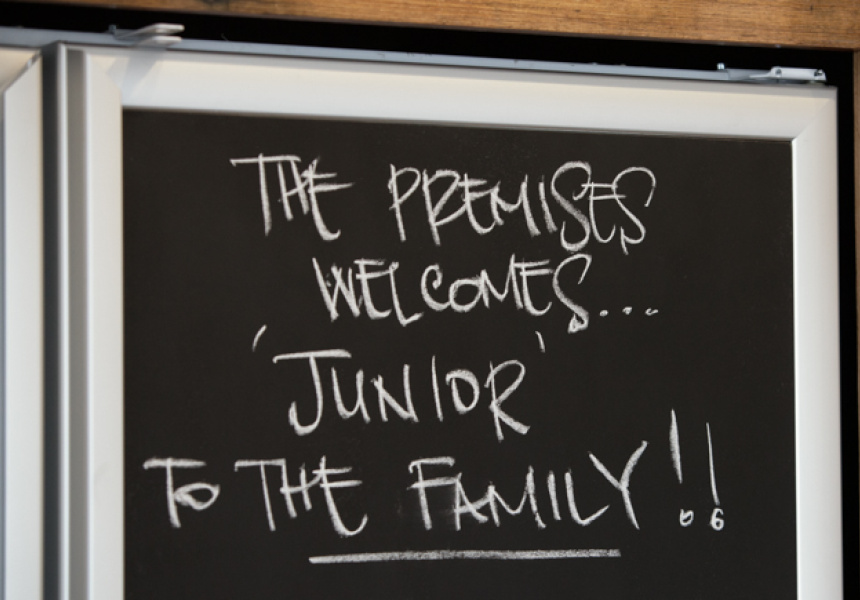 THE PREMISES
WELCOMES....
'JUNIOR'
To THE FAMILY!!